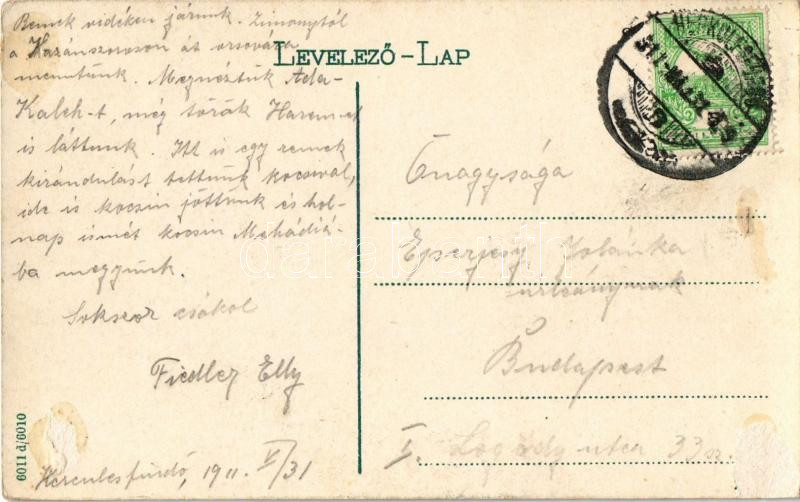 Remek vidéken járunk. Zimonytól
a Kazánszoroson át orsovára
mentünk. Megnéztük Ada-
Kaleh-t, még török Haremet
is láttunk. Itt is egy remek
kirándulást tettünk kocsival,
ide is kocsin jöttünk és hol-
nap ismét kocsin Mehádiá-
ba megyünk.
Sokszor csókol
Fiedler Elly
Herculesfürdő, 1911. V/31
6011 d/6010
LEVELEZŐ-LAP
Őnagysága
Eperjesy Jolánka
urleánynak
Budapest
I. Logódy utca 33 sz.
darabanth